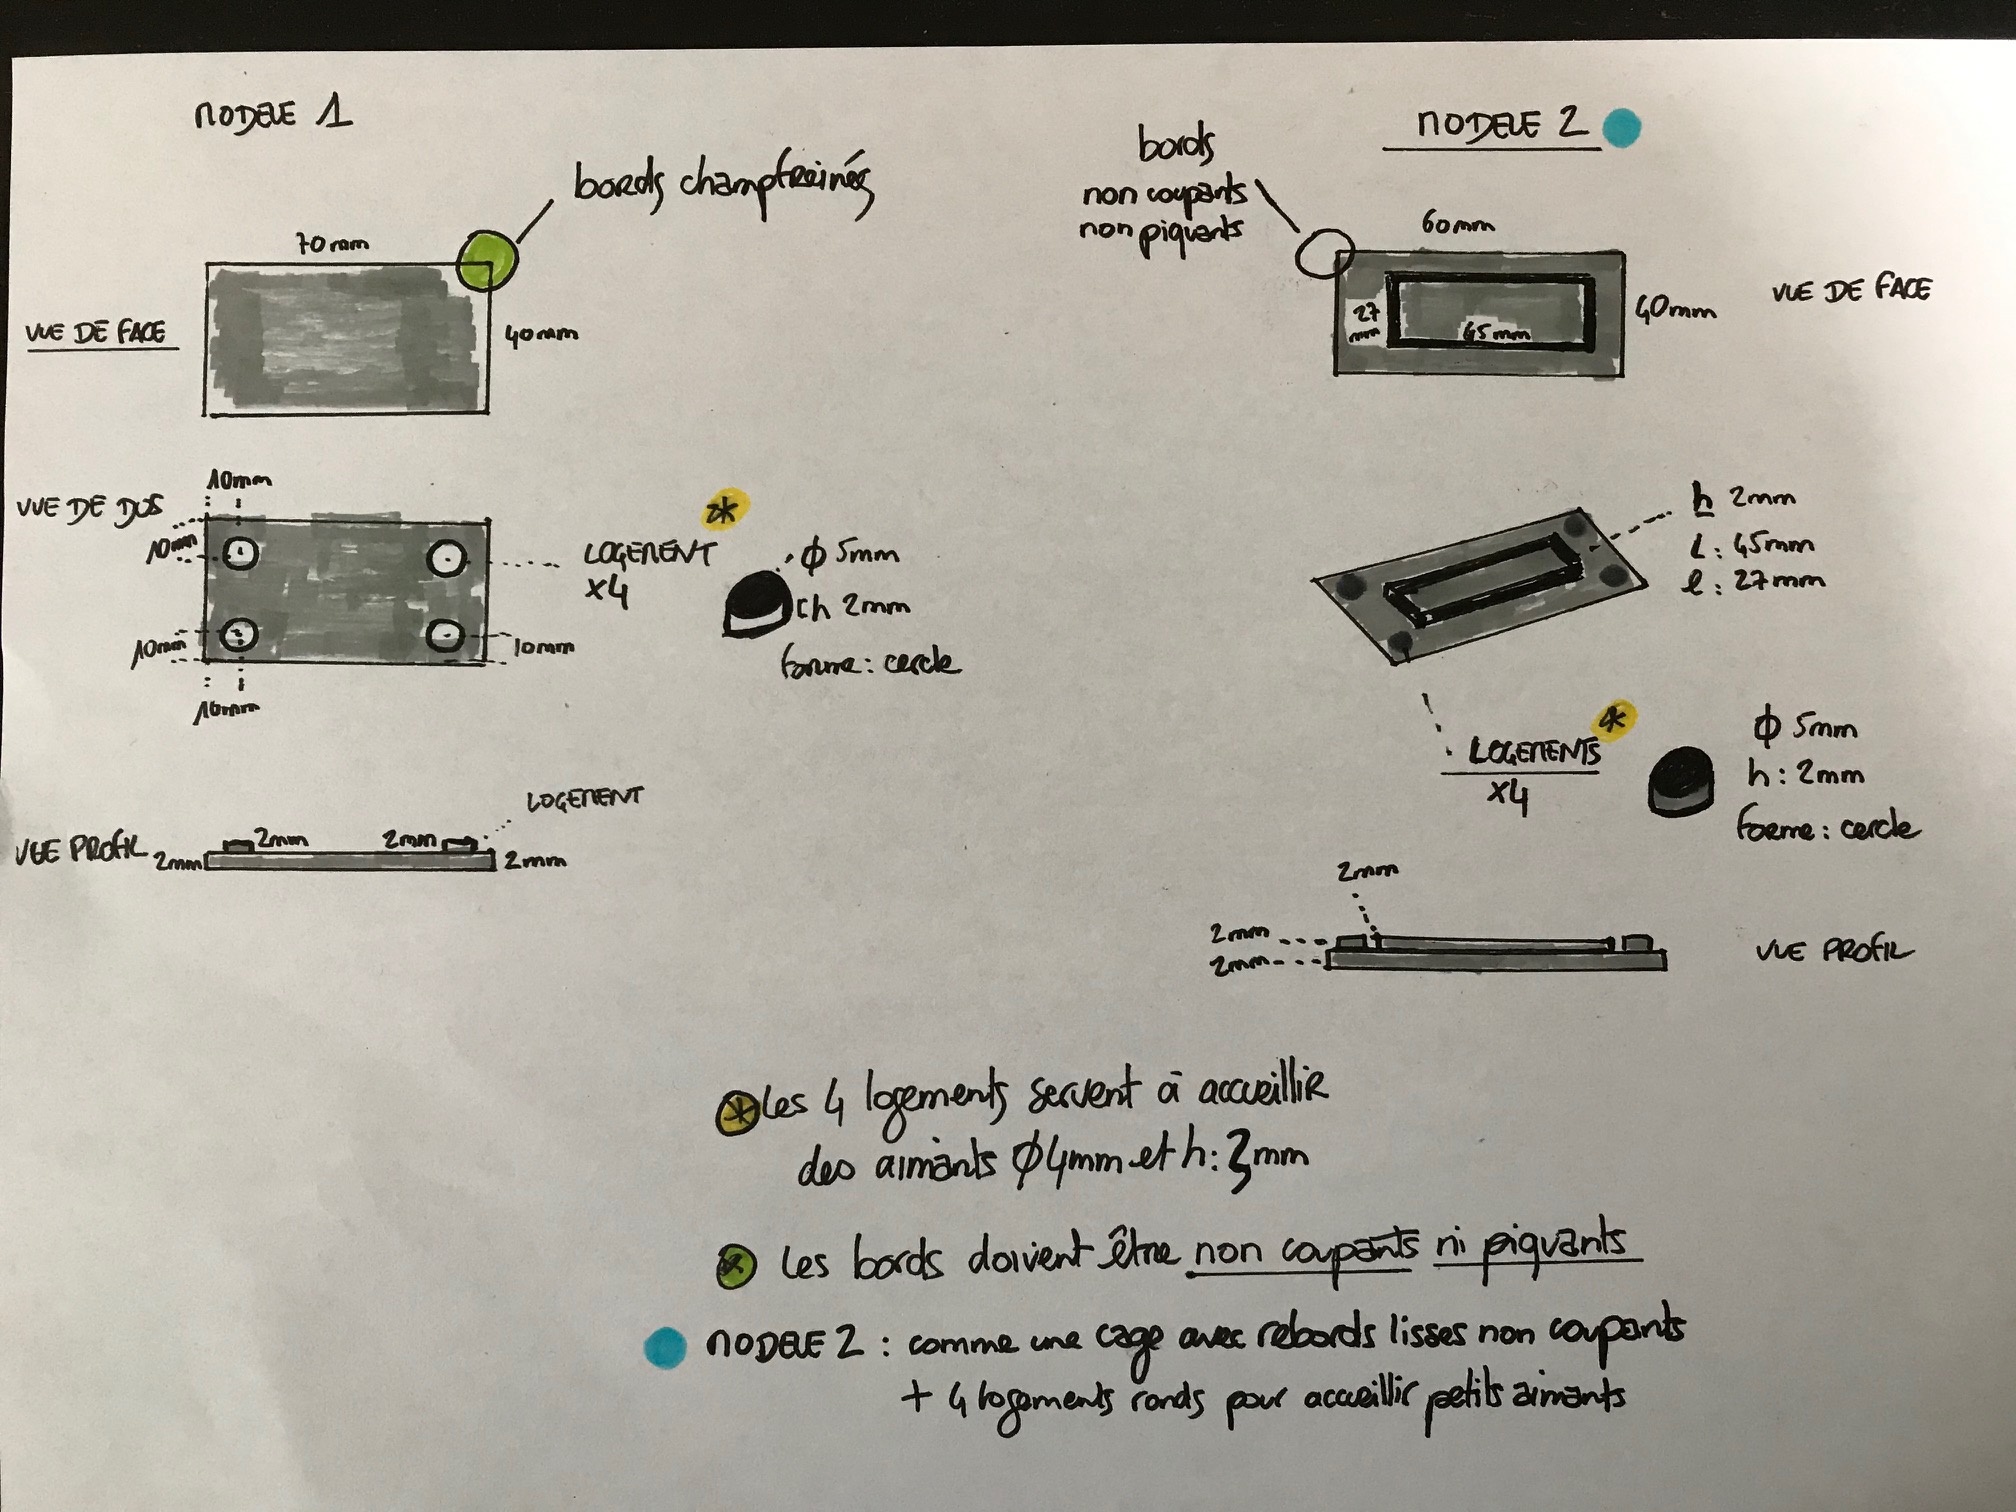 MODELE 1
bords champfreinés
70mm
VUE DE FACE
40mm
VUE DE DOS
10mm
10mm
10mm
10mm
10mm
LOGEMENT
x4
*
ϕ 5mm
h 2mm
forme : cercle
LOGEMENT
VUE PROFIL
2mm
2mm
2mm
2mm
MODELE 2
bords
non coupants
non piquants
60mm
27
mm
45mm
40mm
VUE DE FACE
h 2mm
L : 45mm
l : 27mm
LOGEMENTS
x4
*
ϕ 5mm
h : 2mm
forme : cercle
2mm
2mm
2mm
VUE PROFIL
* Les 4 logements servent à accueillir
des aimants ϕ4mm et h : 3mm
* Les bords doivent être non coupants ni piquants
MODELE 2 : comme une cage avec rebords lisses non coupants
+ 4 logements ronds pour accueillir petits aimants